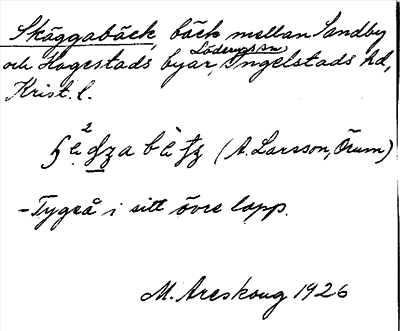 Skäggabäck, bäck mellan Sandby
och Hagestads byar, Löderups sn, Ingelstads hd,
Krist. l.
(A. Larsson, Örum)
- Tygeå i sitt övre lopp.
M. Areskoug 1926